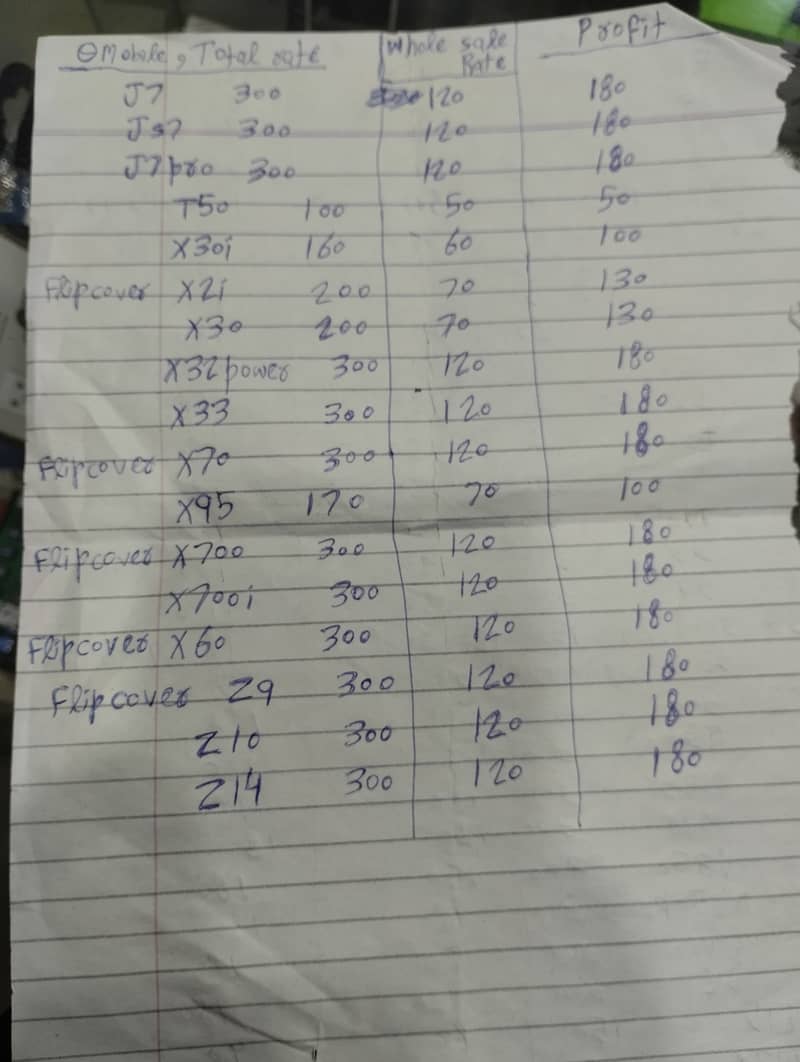 QMobile, Total rate Whole sale Rate Profit
J7 300 120 180
Js7 300 120 180
J7 pro 300 120 180
T50 100 50 50
X30i 160 60 100
Flipcover X2i 200 70 130
X30 200 70 130
X32 power 300 120 180
X33 300 120 180
Flipcover X70 300 120 180
X95 170 70 100
Flipcover X700 300 120 180
X700i 300 120 180
Flipcover X60 300 120 180
Flipcover Z9 300 120 180
Z10 300 120 180
Z14 300 120 180